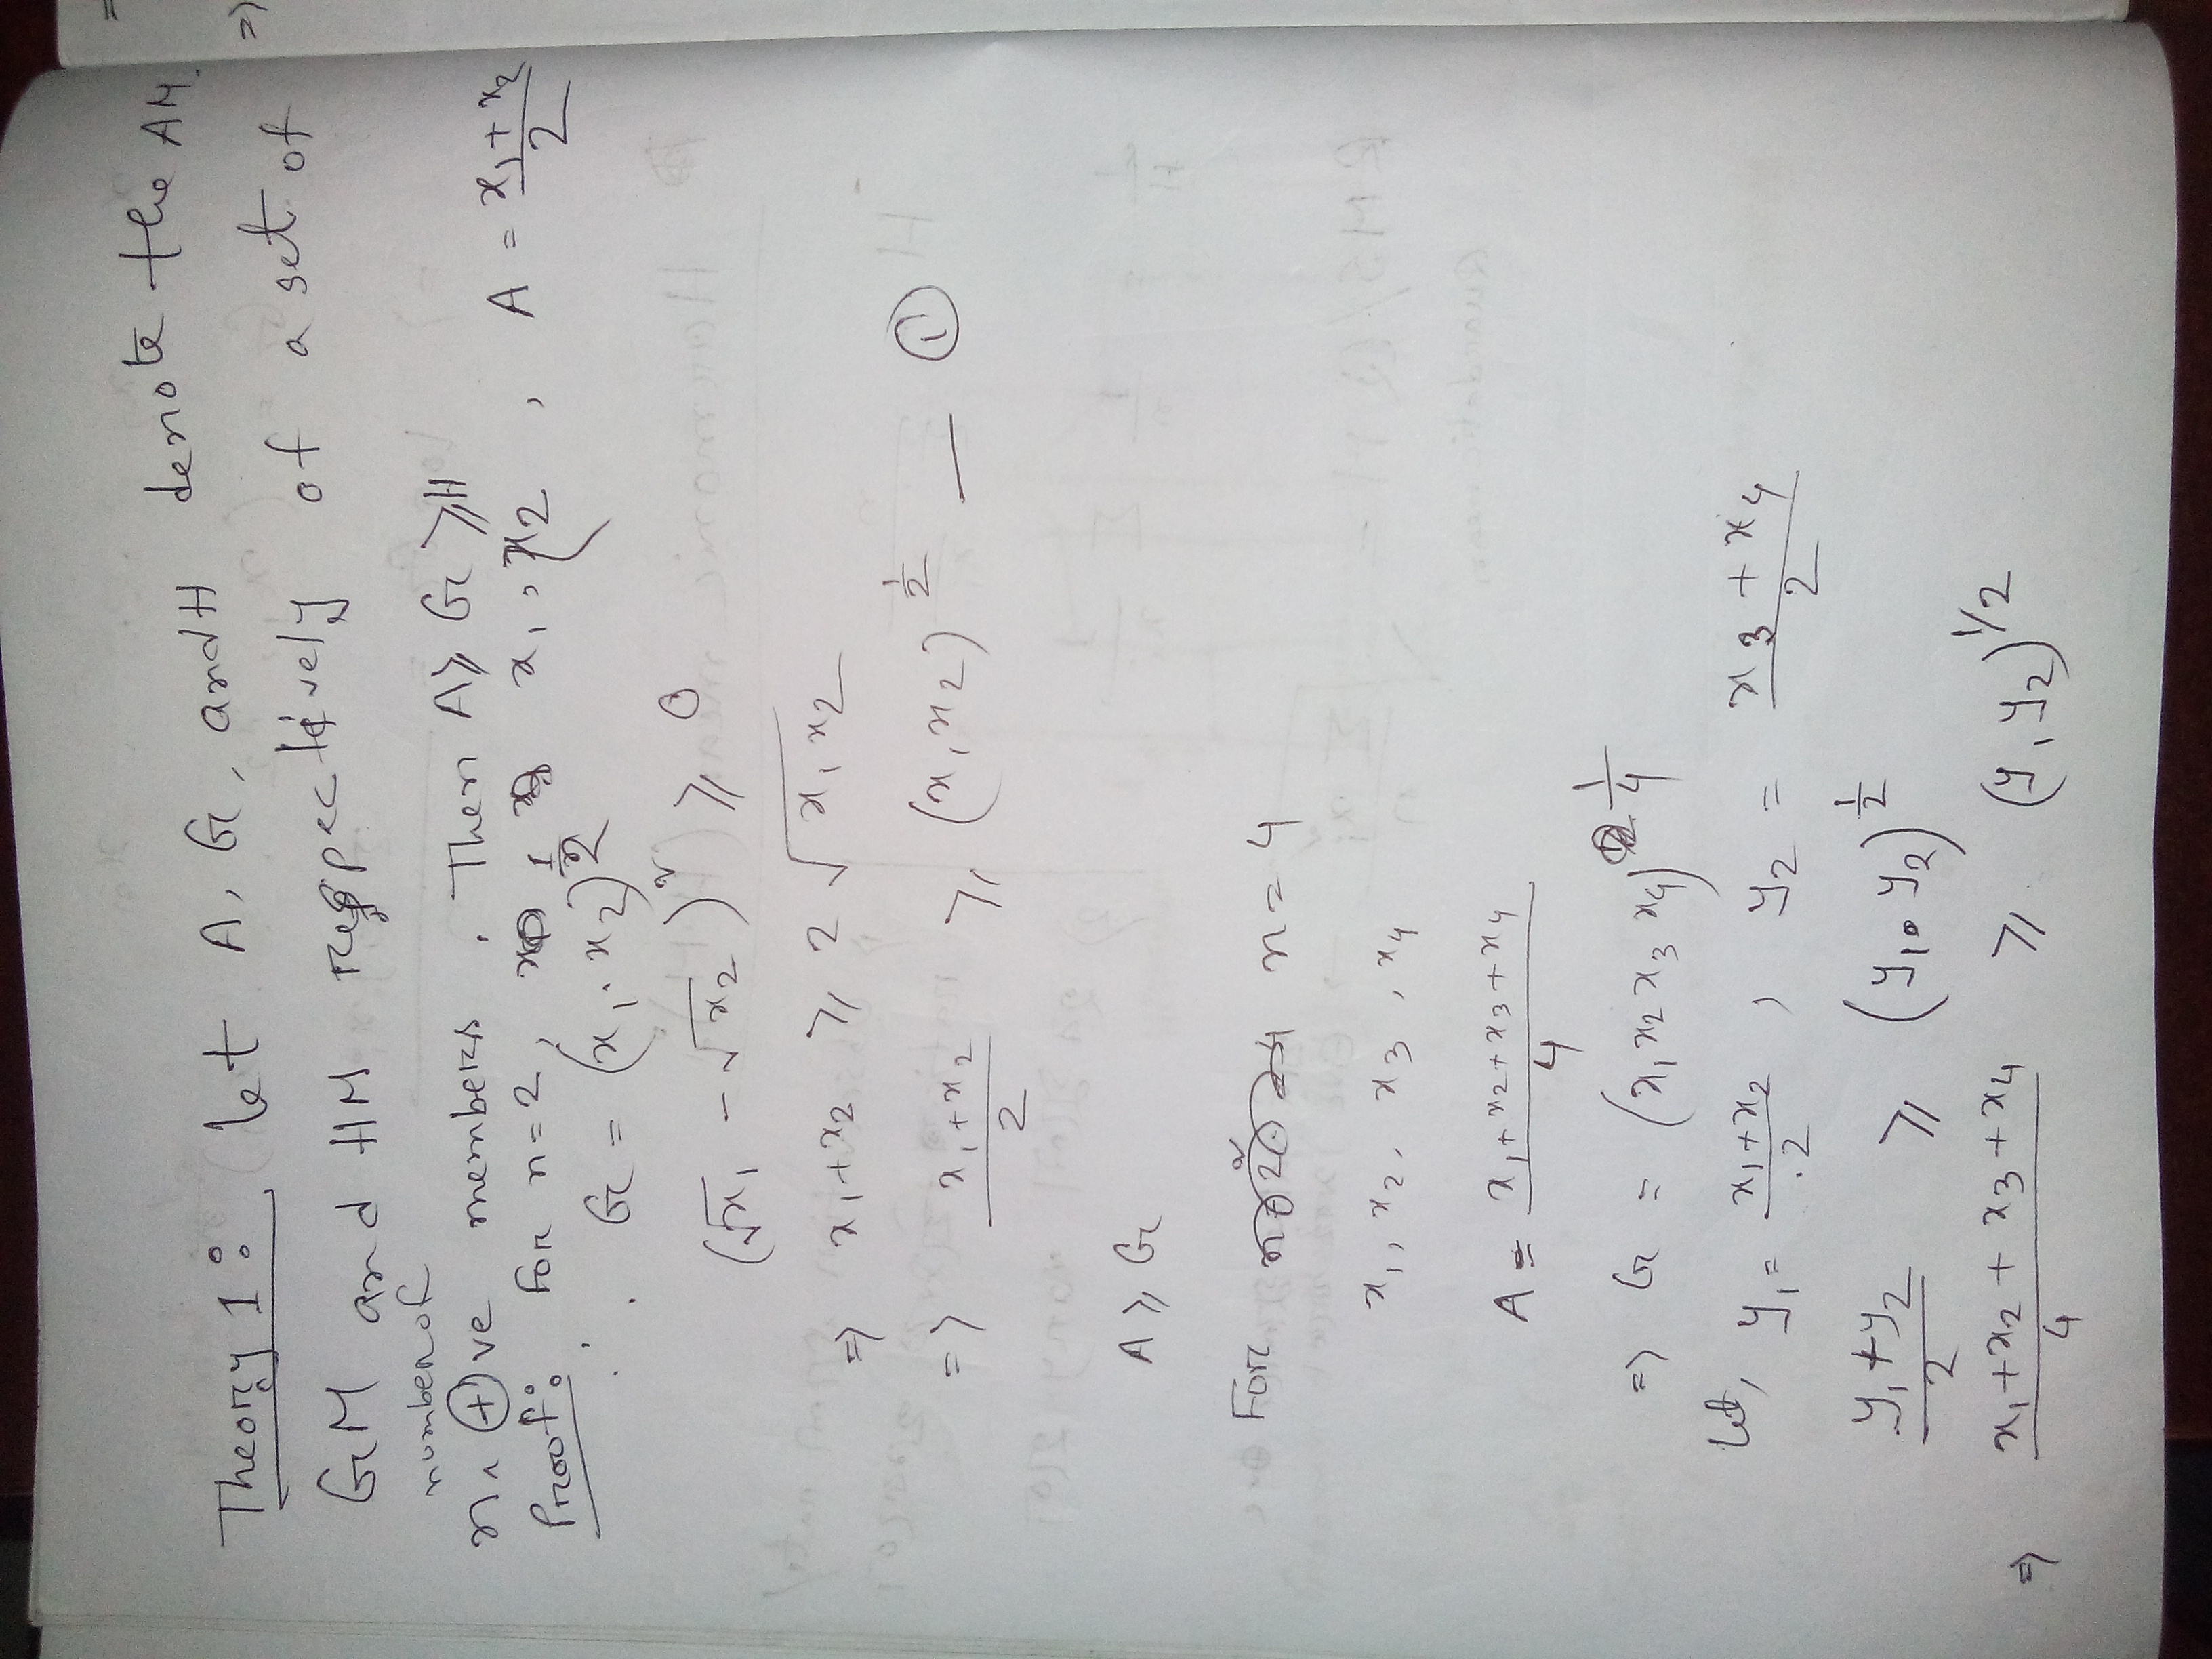 Theory 1: Let A, G, and H denote the AM,
GM and HM respectively of a set of
number of
n, (+)ve members. Then A ≥ G ≥ H
Proof: For n=2, x₁, x₂, A = (x₁+x₂)/2
∴ G = (x₁.x₂)^(1/2)
(√x₁ - √x₂)² ≥ 0
⇒ x₁+x₂ ≥ 2√x₁x₂
⇒ (x₁+x₂)/2 ≥ (x₁x₂)^(1/2) — ①
A ≥ G
For n=4
x₁, x₂, x₃, x₄
A = (x₁+x₂+x₃+x₄)/4
⇒ G = (x₁x₂x₃x₄)^(1/4)
Let, y₁ = (x₁+x₂)/2, y₂ = (x₃+x₄)/2
(y₁+y₂)/2 ≥ (y₁.y₂)^(1/2)
⇒ (x₁+x₂+x₃+x₄)/4 ≥ (y₁y₂)^(1/2)